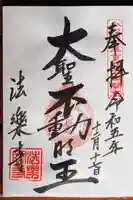 奉拝
令和五年
十二月十七日
大聖不動明王
法樂寺